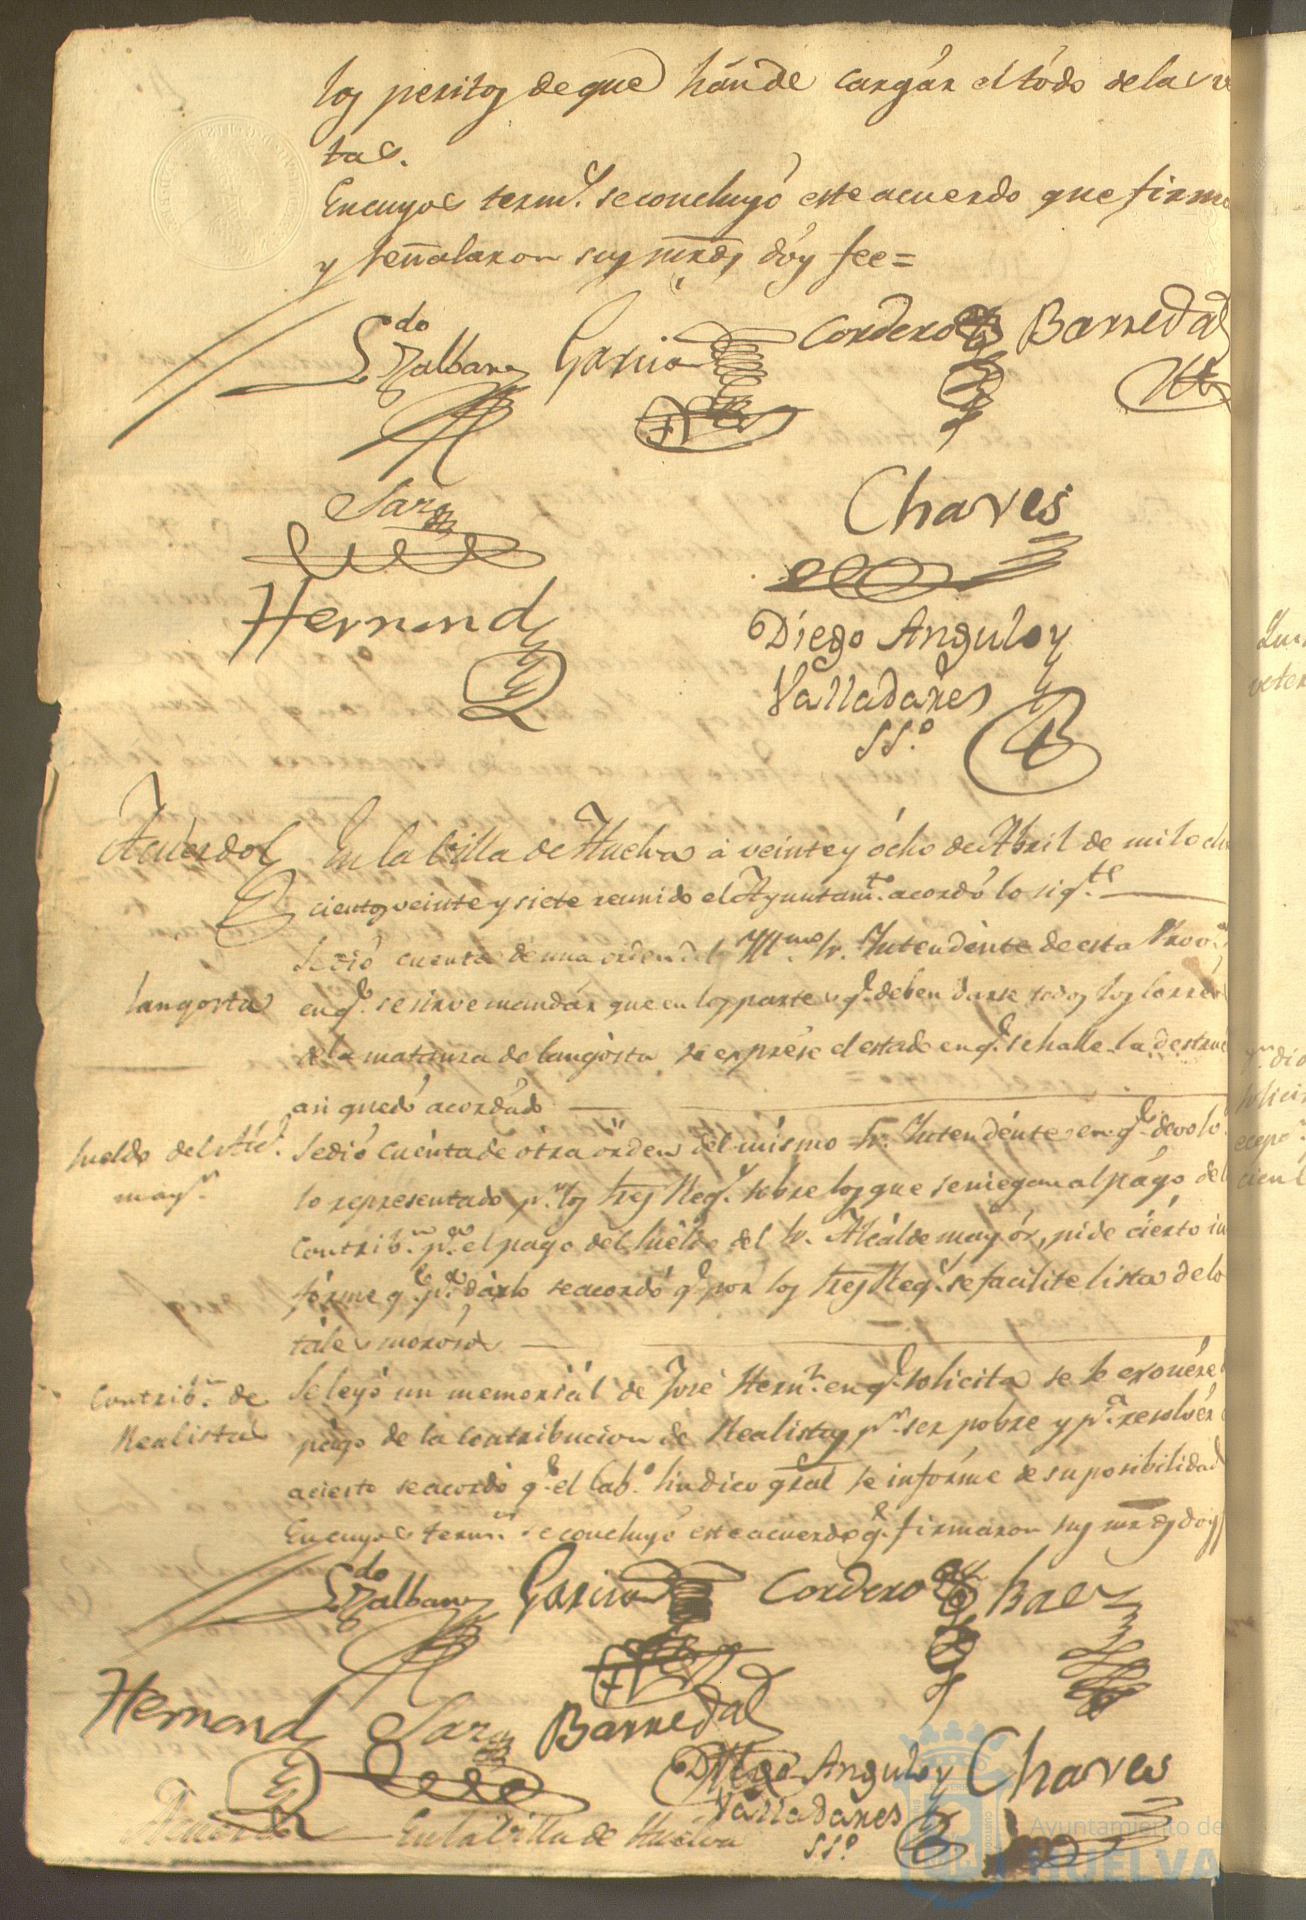 los peritos de que hánde cargár el tódo de las
tas.
En cuyos termˢ. se concluyó este acuerdo que firma
y señalaron sus mrds, dóy fee=
Lᵈᵒ Garcia Cordero Barreda
Chaves
Hernand
Diego Angulo y
Valladares
SSº.
Acuerdo En la Villa de Huelva á veinte y ócho de Abril de mil ocho
cientos veinte y siete reunido el Ayuntamᵗº. acordó lo sigᵗᵉ.
langosta
Se dió cuenta de una orden del Yllᵐᵒ Sr. Yntendénte de esta Provᵃ
en q. se sirve mandár que en los partes q. deben darse todos los
a la matanza de langósta se exprése el estado en q. se halle la
asi quedó acordado
sueldo del Alc.
mayʳ.
Se dió cuénta de ótra órden del mísmo Sr. Yntendénte en q.
lo representado pʳ. los Sres Regˢ. sobre los que se niegan al págo de
contribⁿ. pᵃ. el pago del suéldo del Sr. Alcálde mayór, pide ciérto in
fórme q. pᵃ. dárlo se acordó q. por los Sres Regˢ. se facilite lista de lo
táles morosos
Contribⁿ. de
Realistas
Se leyó un memoriál de José Hernᶻ. en q. solicita se le exonére
págo de la contribucion de Realistas pʳ. ser pobre y pᵃ. resolvér
acierto se acordó q. el Cabº. Sindico gral se infórme de su posibilidad
En cuyos termˢ. se concluyó este acuerdo q. firmaron sus mrds doy
Lᵈᵒ Garcia Cordero Baez
Hernand Barreda
Diego Angulo y Chaves
Valladares
SSº.
Acuerdo En la Villa de Huelva
Ayuntamiento de
HUELVA